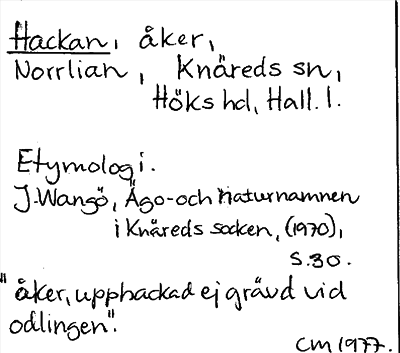 Hackan, åker,
Norrlian, Knäreds sn,
Höks hd, Hall. l.
Etymologi.
J. Wangö, Ägo- och naturnamnen
i Knäreds socken, (1970),
s. 30.
"åker, upphackad ej grävd vid
odlingen".
CM 1977.